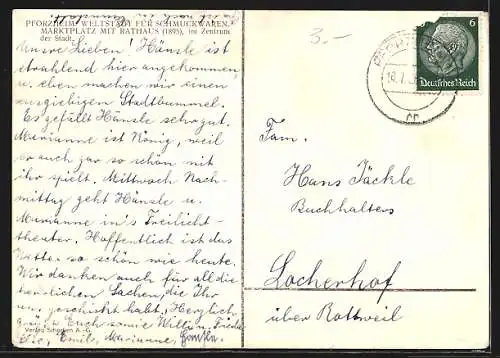 PFORZHEIM WELTSTADT FÜR SCHMUCKWAREN.
MARKTPLATZ MIT RATHAUS (1895), im Zentrum
der Stadt.
Unsre Lieben! Hänsle ist
strahlend hier angekommen
u. eben machen wir einen
ausgiebigen Stadtbummel.
Es gefällt Hänsle sehr gut.
Marianne ist König, weil
er auch gar so schön mit
ihr spielt. Mittwoch Nach-
mittag geht Hänsle u.
Marianne in's Freilicht-
theater. Hoffentlich ist das
Wetter so schön wie heute.
Wir danken auch für all die
herrlichen Sachen, die Ihr
uns geschickt habt. Herzlich
grüßt Euch sowie Willi u. Friede
Emil, Marianne,
Verlag Schöning A.-G.
3.-
6
Deutsches Reich
18.7.
Fam.
Hans Jäckle
Buchhalters
Locherhof
über Rottweil